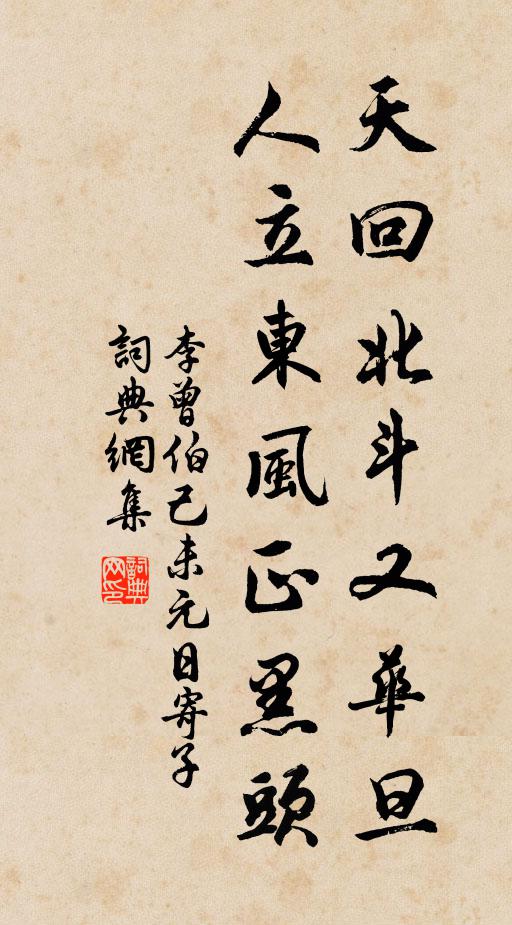 天回北斗又華旦
人立東風正黑頭
李曾伯己未元日寄子
詞典網集
詞典網印